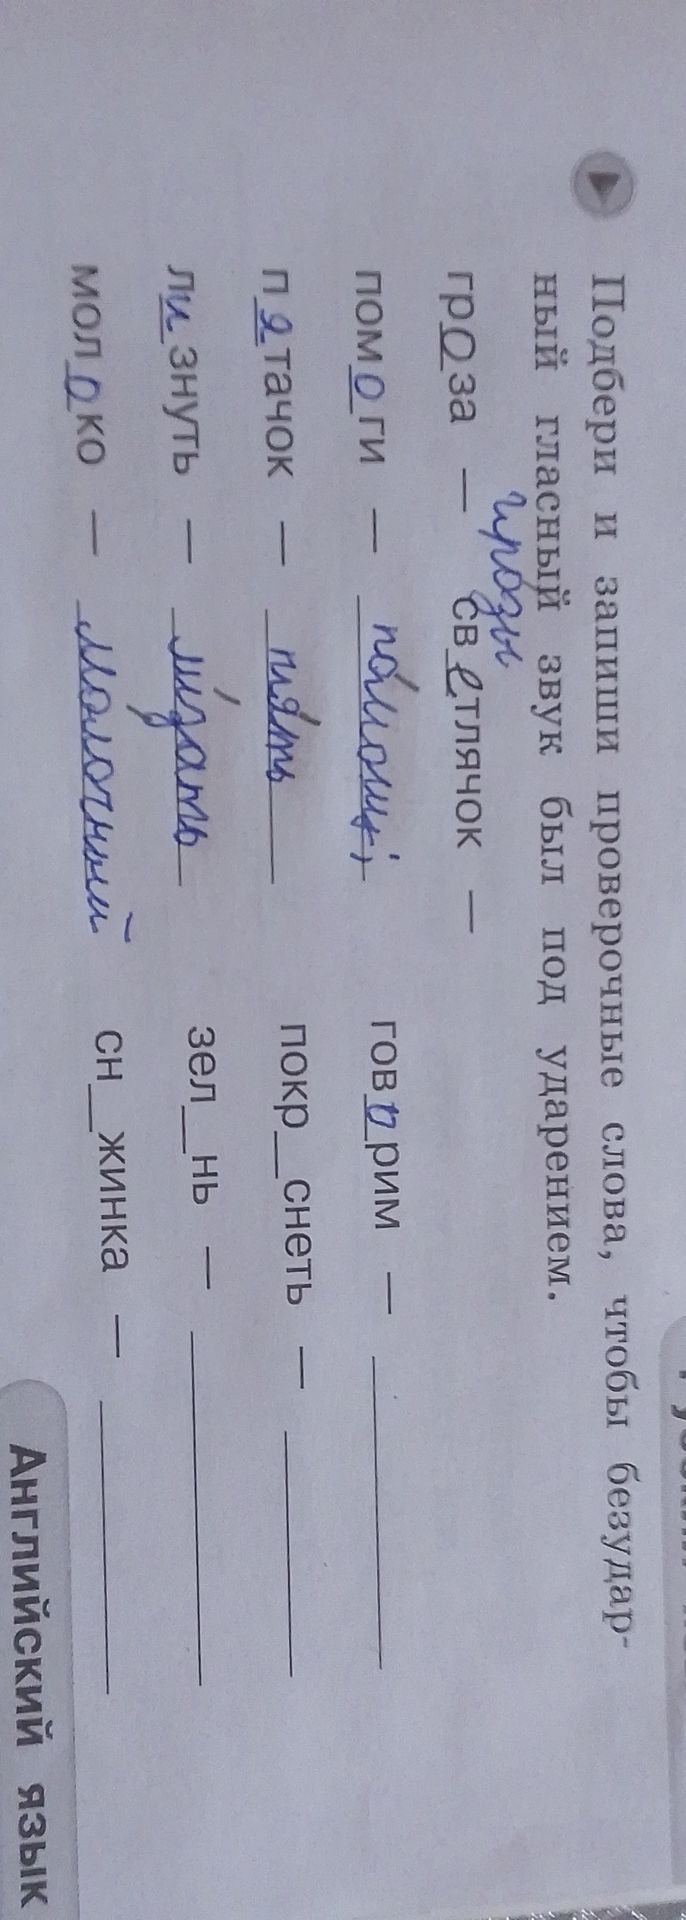 Подбери и запиши проверочные слова, чтобы безудар-
ный гласный звук был под ударением.
гроза — грозы светлячок —
помоги — говорим —
пятачок — пять покр_снеть —
лизнуть — лизать зел_нь —
молоко — молочный сн_жинка —
Английский язык